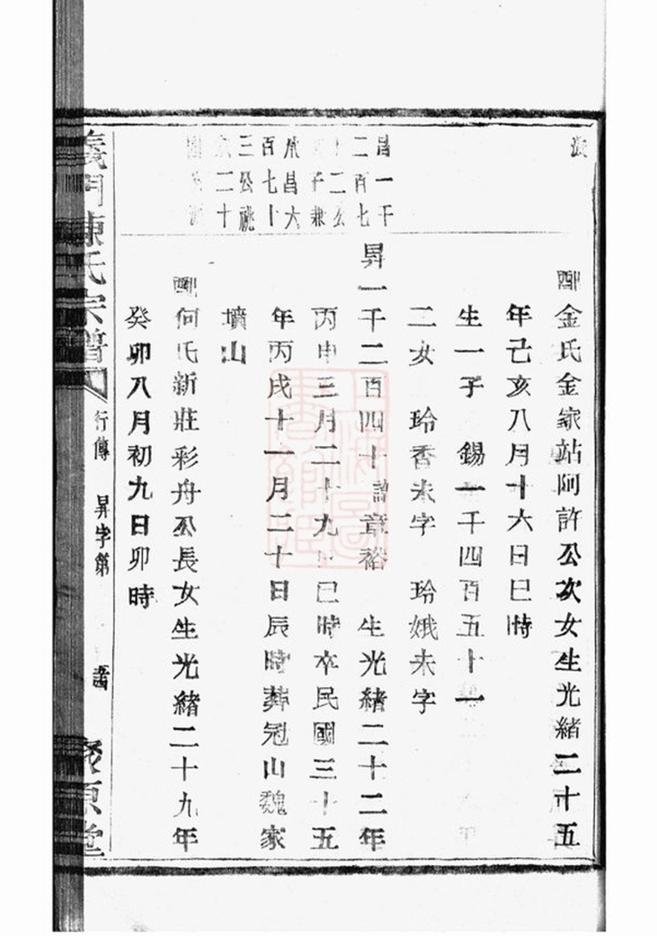 源
配金氏金家站阿許公次女生光緒二十五
年己亥八月十六日巳時
生一子 錫一千四百五十一
二女 玲香未字 玲娥未字
昌一千
二百七
十二公
子兼
承昌六
百七十
三公祧
二十
昇一千二百四十諱章裕 生光緒二十二年
丙申三月二十九日巳時卒民國三十五
年丙戌十一月二十日辰時葬冠山魏家
墳山
配何氏新莊彩舟公長女生光緒二十九年
癸卯八月初九日卯時
義門陳氏宗譜 行傳 昇字第 聚原堂